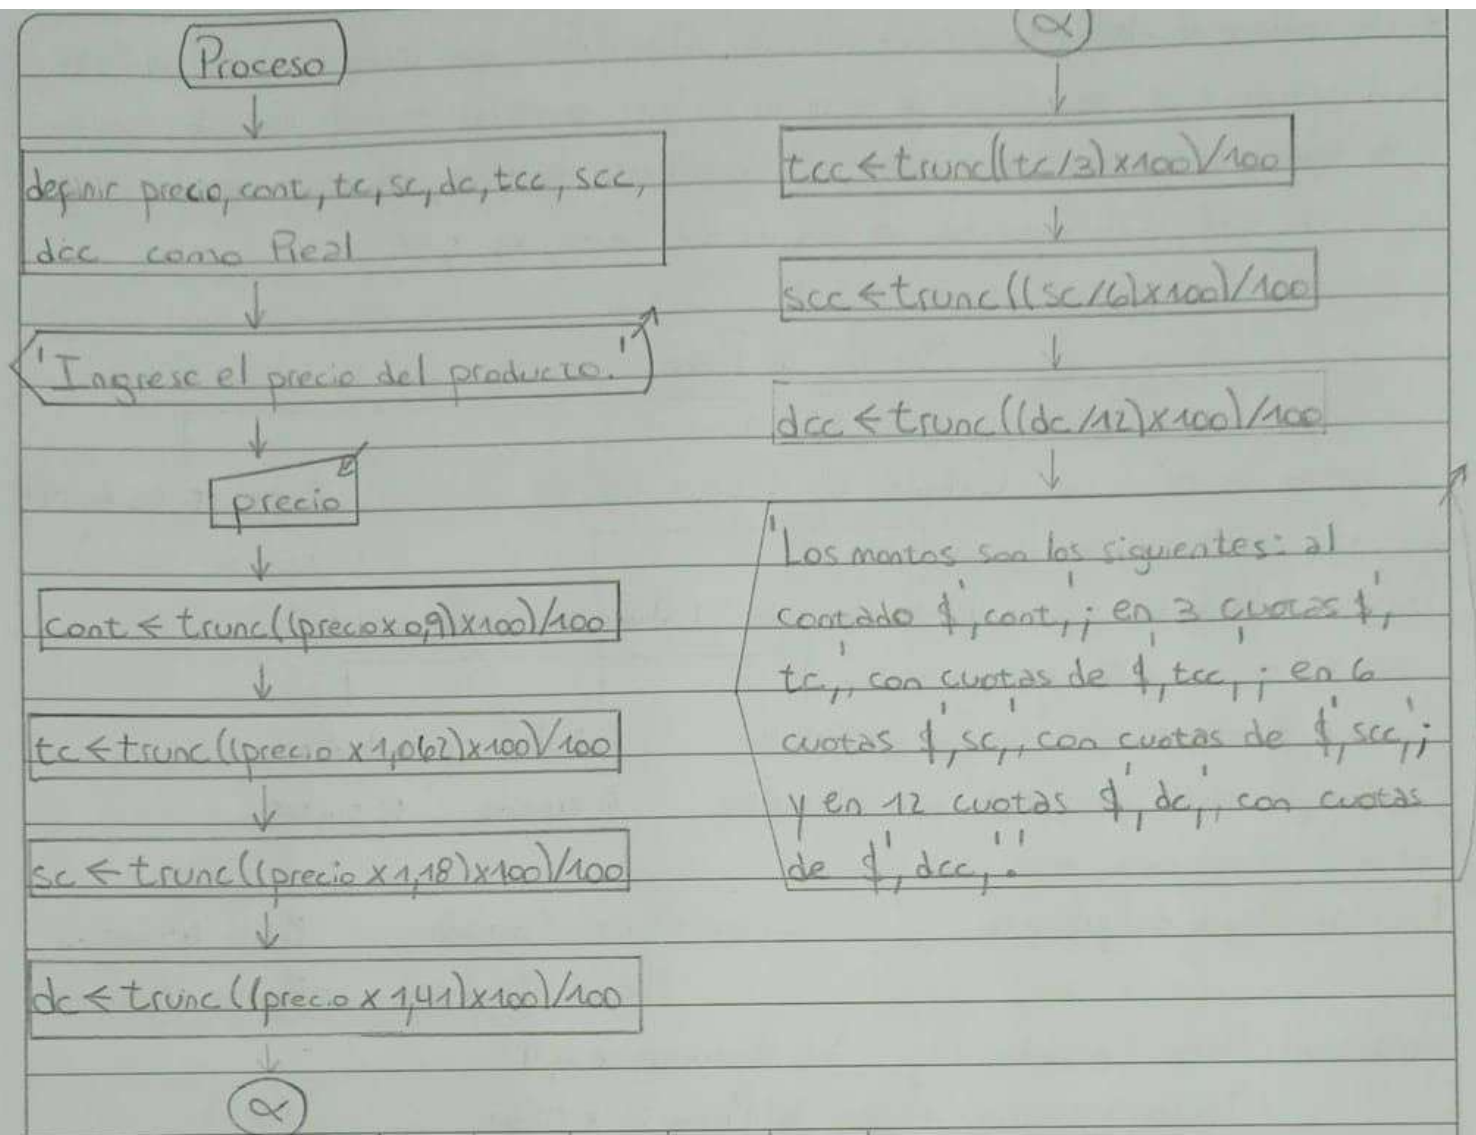 Proceso
definir precio, cont, tc, sc, dc, tcc, scc,
dcc como Real
'Ingrese el precio del producto.'
precio
cont ← trunc((precio x 0,9) x 100)/100
tc ← trunc((precio x 1,062) x 100)/100
sc ← trunc((precio x 1,18) x 100)/100
dc ← trunc((precio x 1,41) x 100)/100
α
α
tcc ← trunc((tc/3) x 100)/100
scc ← trunc((sc/6) x 100)/100
dcc ← trunc((dc/12) x 100)/100
'Los montos son los siguientes: al
contado $', cont, '; en 3 cuotas $',
tc, ', con cuotas de $', tcc, '; en 6
cuotas $', sc, ', con cuotas de $', scc, ';
y en 12 cuotas $', dc, ', con cuotas
de $', dcc, '.'